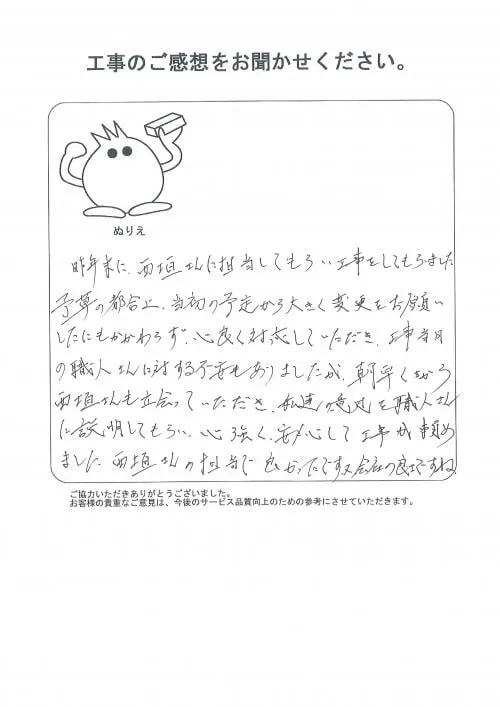 工事のご感想をお聞かせください。
ぬりえ
昨年末に、西垣さんに担当してもらい工事をしてもらいました
予算の都合上、当初の予定から大きく変更をお願い
したにもかかわらず、心良く対応していただき、工事当日
の職人さんに対する不安もありましたが、朝早くから
西垣さんも立会っていただき、私達の意見を職人さん
に説明してもらい、心強く、安心して工事が頼め
ました。西垣さんの担当で良かったです
ご協力いただきありがとうございました。
お客様の貴重なご意見は、今後のサービス品質向上のための参考にさせていただきます。